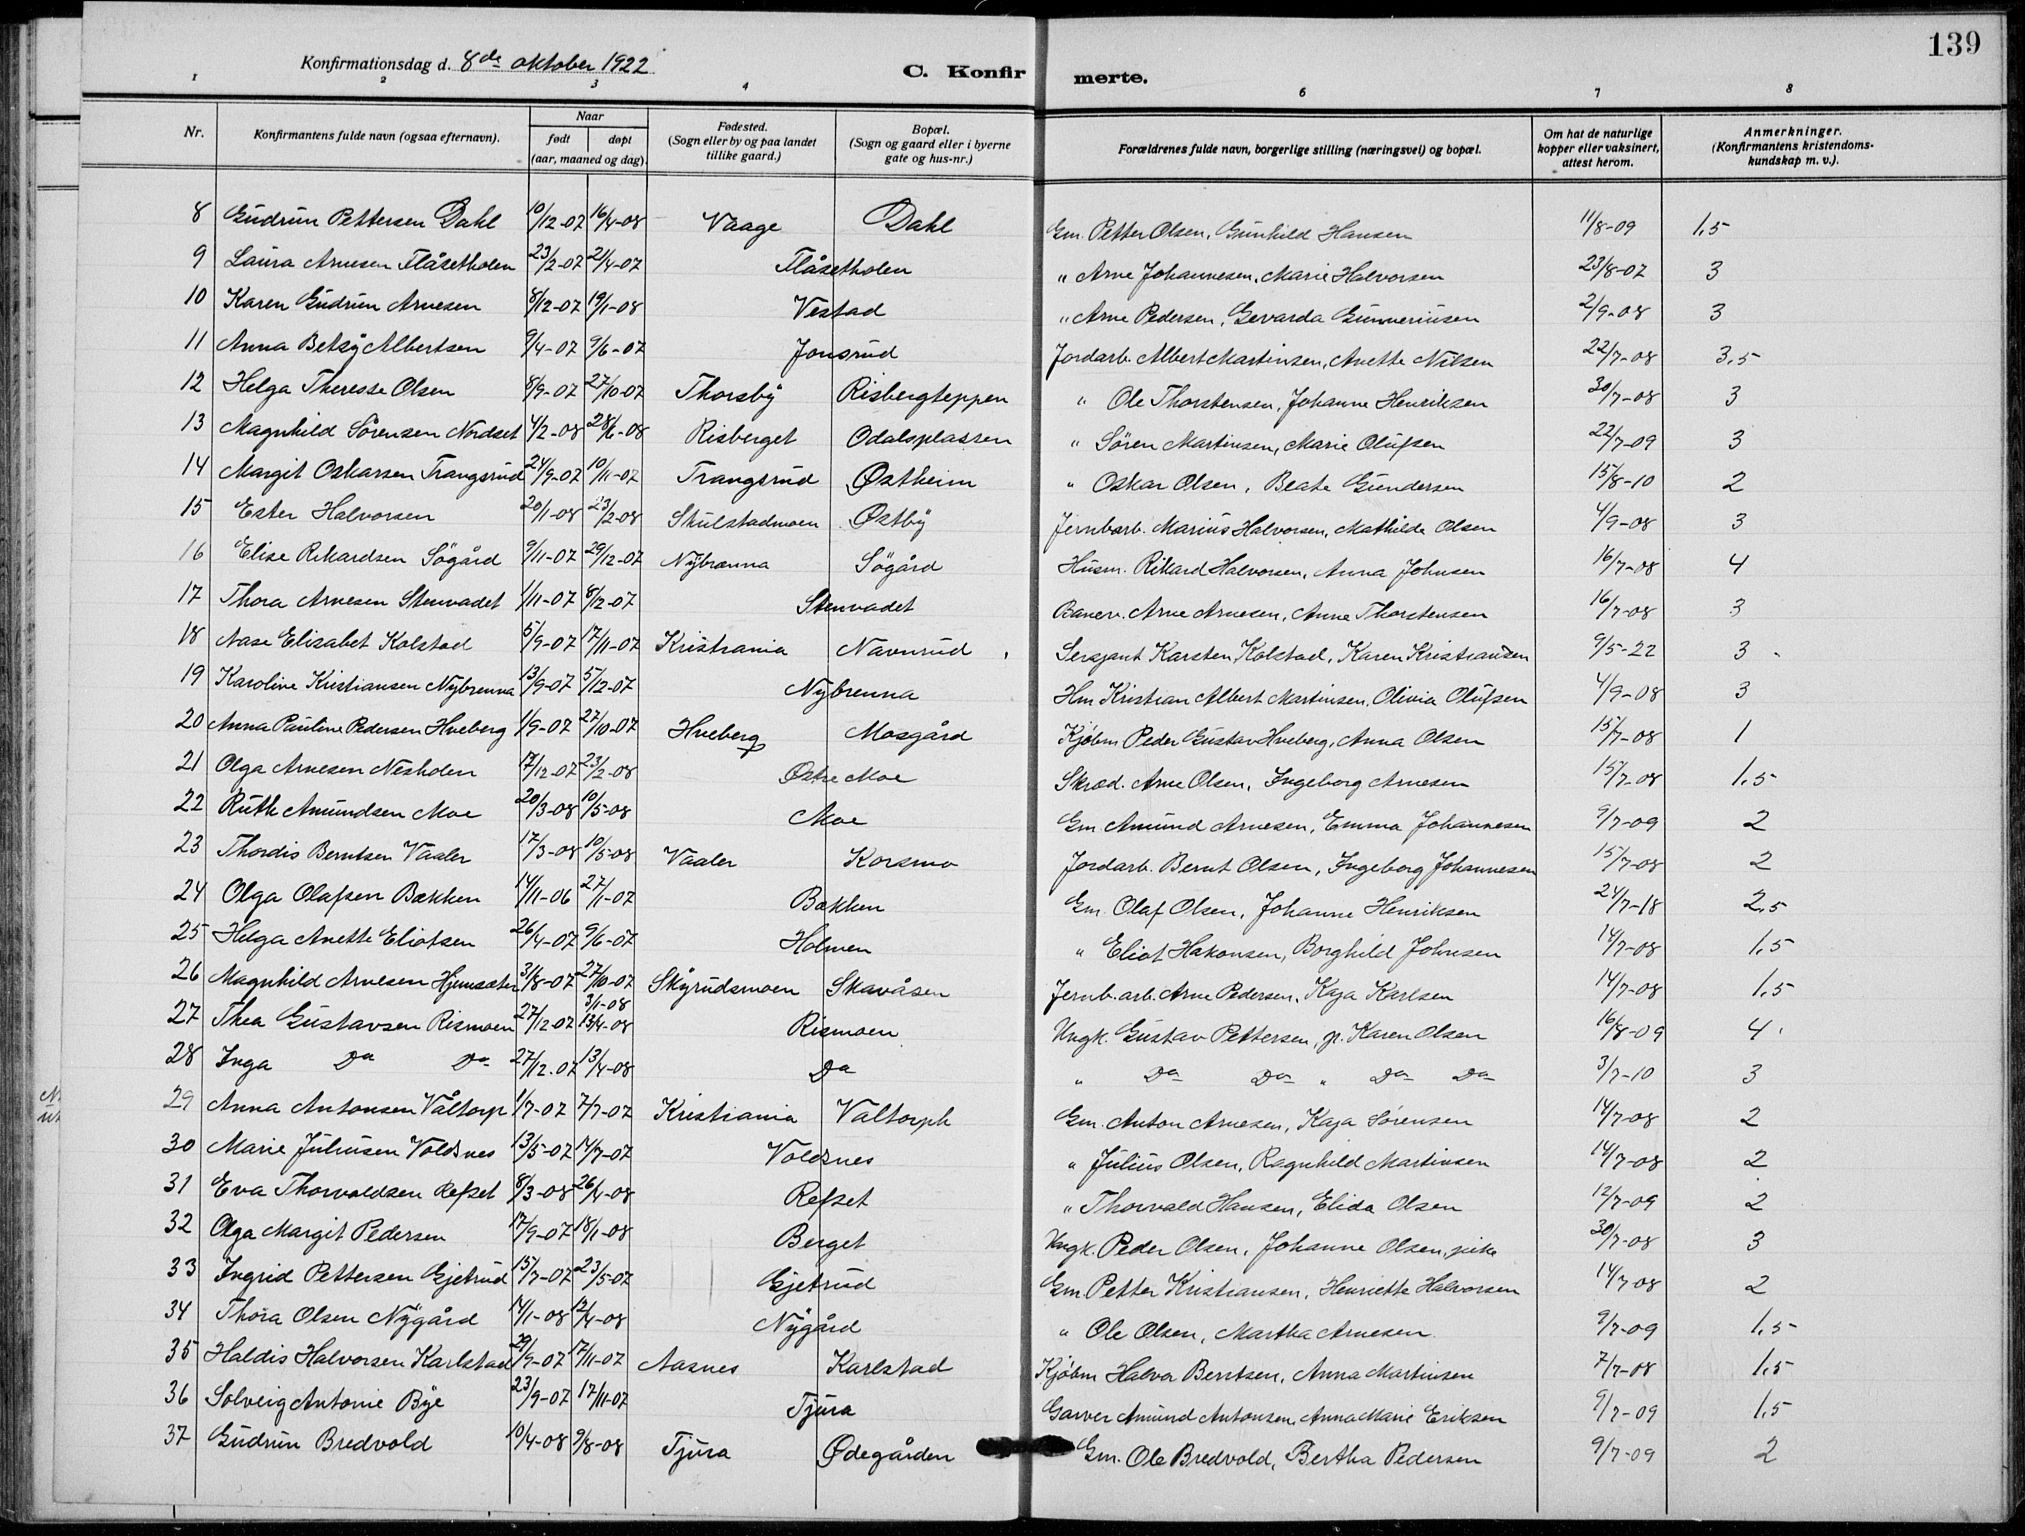 139
Konfirmationsdag d. 8de oktober 1922
C. Konfirmerte.
1 2 3 4 6 7 8
Nr. Konfirmantens fulde navn (ogsaa efternavn). Naar født døpt (aar, maaned og dag). Fødested. (Sogn eller by og paa landet tillike gaard.) Bopæl. (Sogn og gaard eller i byerne gate og hus-nr.) Forældrenes fulde navn, borgerlige stilling (næringsvei) og bopæl. Om hat de naturlige kopper eller vaksinert, attest herom. Anmerkninger. (Konfirmantens kristendomskundskap m. v.).
8 Gudrun Pettersen Dahl 10/12-07 16/4-08 Vaage Dahl Gm. Petter Olsen, Gunhild Hansen 11/8-09 1,5
9 Laura Arnesen Flåsetholen 23/2-07 21/4-07 Flåsetholen " Arne Johannesen, Marie Halvorsen 23/8-07 3
10 Karen Gudrun Arnesen 8/12-07 19/1-08 Vestad " Arne Pedersen, Gevarda Gunneriusen 2/9-08 3
11 Anna Betsy Albertsen 9/4-07 9/6-07 Jonsrud Jordarb. Albert Martinsen, Anette Nilsen 22/7-08 3,5
12 Helga Theresse Olsen 8/9-07 27/10-07 Thorsby Risbergteppen " Ole Thorstensen, Johanne Henriksen 30/7-08 3
13 Magnhild Sörensen Nordset 4/2-08 28/6-08 Risberget Odalsplassen " Sören Martinsen, Marie Olufsen 22/7-09 3
14 Margit Oskarsen Trangsrud 24/9-07 10/11-07 Trangsrud Østheim " Oskar Olsen, Beate Gundersen 15/8-10 2
15 Ester Halvorsen 20/1-08 23/2-08 Skulstadmoen Østby Jernbarb. Marius Halvorsen, Mathilde Olsen 4/9-08 3
16 Elise Rikardsen Sögård 9/11-07 29/12-07 Nybrænna Sögård Husm. Rikard Halvorsen, Anna Johnsen 16/7-08 4
17 Thora Arnesen Stenvadet 1/11-07 8/12-07 Stenvadet Banev. Arne Arnesen, Anne Thorstensen 16/7-08 3
18 Aase Elisabet Kolstad 5/9-07 17/11-07 Kristiania Navnrud Sersjant Karsten Kolstad, Karen Kristiansen 9/5-22 3
19 Karoline Kristiansen Nybrenna 13/9-07 5/12-07 Nybrenna Hm Kristian Albert Martinsen, Olivia Olufsen 4/9-08 3
20 Anna Pauline Pedersen Hveberg 1/9-07 27/10-07 Hveberg Mosgård Kjøbm Peder Gustav Hveberg, Anna Olsen 15/7-08 1
21 Olga Arnesen Nesholen 17/12-07 23/2-08 Østre Moe Skræd. Arne Olsen, Ingeborg Arnesen 15/7-08 1,5
22 Ruth Amundsen Moe 20/3-08 10/5-08 Moe Gm Amund Arnesen, Emma Johannesen 9/7-09 2
23 Thordis Berntsen Vaaler 17/3-08 10/5-08 Vaaler Korsmo Jordarb. Bernt Olsen, Ingeborg Johannesen 15/7-08 2
24 Olga Olafsen Bækken 14/11-06 27/1-07 Bækken Gm. Olaf Olsen, Johanne Henriksen 24/7-18 2,5
25 Helga Anette Eliotsen 26/4-07 9/6-07 Holmen " Eliot Hakonsen, Borghild Johnsen 14/7-08 1,5
26 Magnhild Arnesen Hjemsæter 31/8-07 27/10-07 Skyrudsmoen Skavåsen Jernb.arb. Arne Pedersen, Kaja Karlsen 14/7-08 1,5
27 Thea Gustavsen Rismoen 27/12-07 3/1-08 13/4-08 Rismoen Ungk. Gustav Pettersen, p. Karen Olsen 16/8-09 4
28 Inga Do Do 27/12-07 13/4-08 Do " Do Do " Do Do 3/7-10 3
29 Anna Antonsen Våltorp 1/7-07 7/7-07 Kristiania Valtorph Gm. Anton Arnesen, Kaja Sörensen 14/7-08 2
30 Marie Juliusen Voldsnes 13/5-07 14/7-07 Voldsnes " Julius Olsen, Ragnhild Martinsen 14/7-08 2
31 Eva Thorvaldsen Refset 8/3-08 26/4-08 Refset " Thorvald Hansen, Elida Olsen 12/7-09 2
32 Olga Margit Pedersen 17/9-07 18/1-08 Berget Ungk. Peder Olsen, Johanne Olsen, pike 30/7-08 3
33 Ingrid Pettersen Gjetrud 15/7-07 23/5-07 Gjetrud Gm. Petter Kristiansen, Henriette Halvorsen 14/7-08 2
34 Thora Olsen Nygård 14/1-08 12/4-08 Nygård " Ole Olsen, Martha Arnesen 9/7-09 1,5
35 Haldis Halvorsen Karlstad 29/9-07 17/11-07 Aasnes Karlstad Kjøbm Halvor Berntsen, Anna Martinsen 7/7-08 1,5
36 Solveig Antonie Bye 23/9-07 17/11-07 Tjura Garver Amund Antonsen, Anna Marie Eriksen 9/7-09 1,5
37 Gudrun Bredvold 10/4-08 9/8-08 Tjura Ødegården Gm. Ole Bredvold, Bertha Pedersen 9/7-09 2